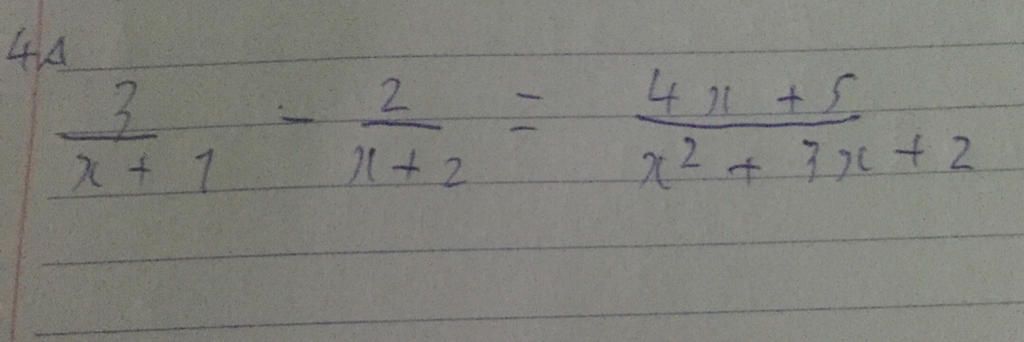 4A
3/(x + 1) - 2/(x + 2) = (4x + 5)/(x² + 3x + 2)